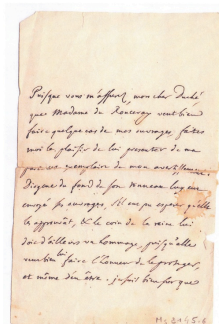 Puisque vous m'assurez, mon cher Duché
que Madame de Ronceray veut bien
faire quelque cas de mes ouvrages, faites
moi le plaisir de lui presenter de ma
part un exemplaire de mon
Diogene du fond de son tonneau lui eut
envoyé ses ouvrages, s'il eut pu esperer qu'elle
les approuvât, & le coin de la reine lui
doit d'ailleurs un hommage, puisqu'elle
veut bien lui faire l'honneur de le proteger,
et même d'en être. je suis bien sur que